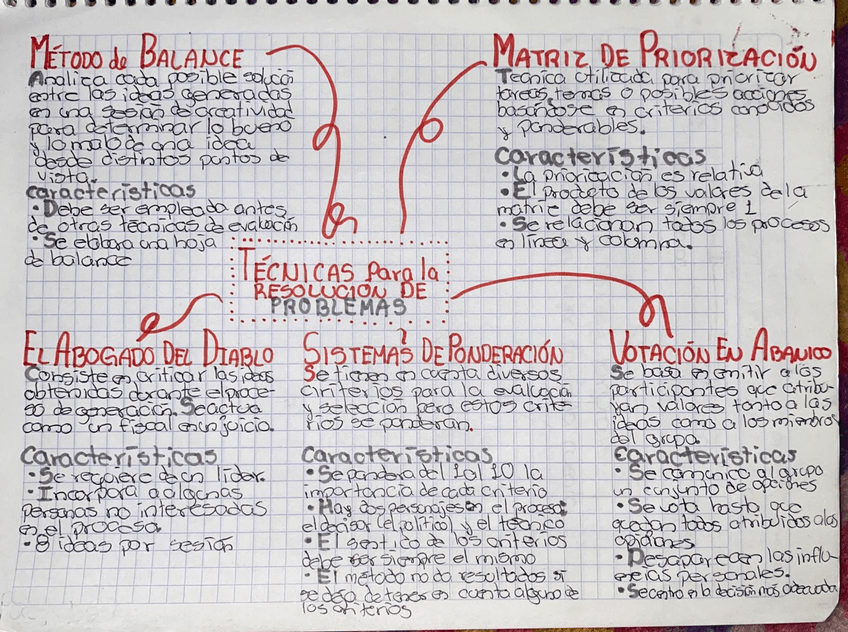 MÉTODO de BALANCE
Analiza cada posible solución
entre las ideas generadas
en una sesión de creatividad
para determinar lo bueno
y lo malo de una idea
desde distintos puntos de
vista.
características
• Debe ser empleada antes
de otras técnicas de evaluación
• Se elabora una hoja
de balance
MATRIZ DE PRIORIZACIÓN
Técnica utilizada para priorizar
tareas, temas o posibles acciones,
basándose en criterios conocidos
y ponderables.
características
• La priorización es relativa
• El producto de los valores de la
matriz debe ser siempre 1
• Se relacionan todos los procesos
en línea y columna.
TÉCNICAS Para la
RESOLUCIÓN DE
PROBLEMAS
EL ABOGADO DEL DIABLO
Consiste en criticar las ideas
obtenidas durante el proce-
so de generación. Se actua
como un fiscal en un juicio.
Características
• Se requiere de un líder.
• Incorpora a algunas
personas no interesadas
en el proceso.
• 8 ideas por sesión
SISTEMAS DE PONDERACIÓN
Se tienen en cuenta diversos
criterios para la evaluación
y selección pero estos crite-
rios se ponderan.
Características
• Se pondera del 1 al 10 la
importancia de cada criterio
• Hay dos personajes en el proceso:
el decisor (el político) y el técnico
• El sentido de los criterios
debe ser siempre el mismo
• El método no da resultados si
se deja de tener en cuenta alguno de
los criterios
VOTACIÓN EN ABANICO
Se basa en emitir a los
participantes que atribu-
yan valores tanto a las
ideas como a los miembros
del grupo.
Características
• Se comunica al grupo
un conjunto de opciones
• Se vota hasta que
quedan todos atribuidos a las
opiniones
• Desaparecen las influ-
encias personales.
• Se centra en la decisión más adecuada